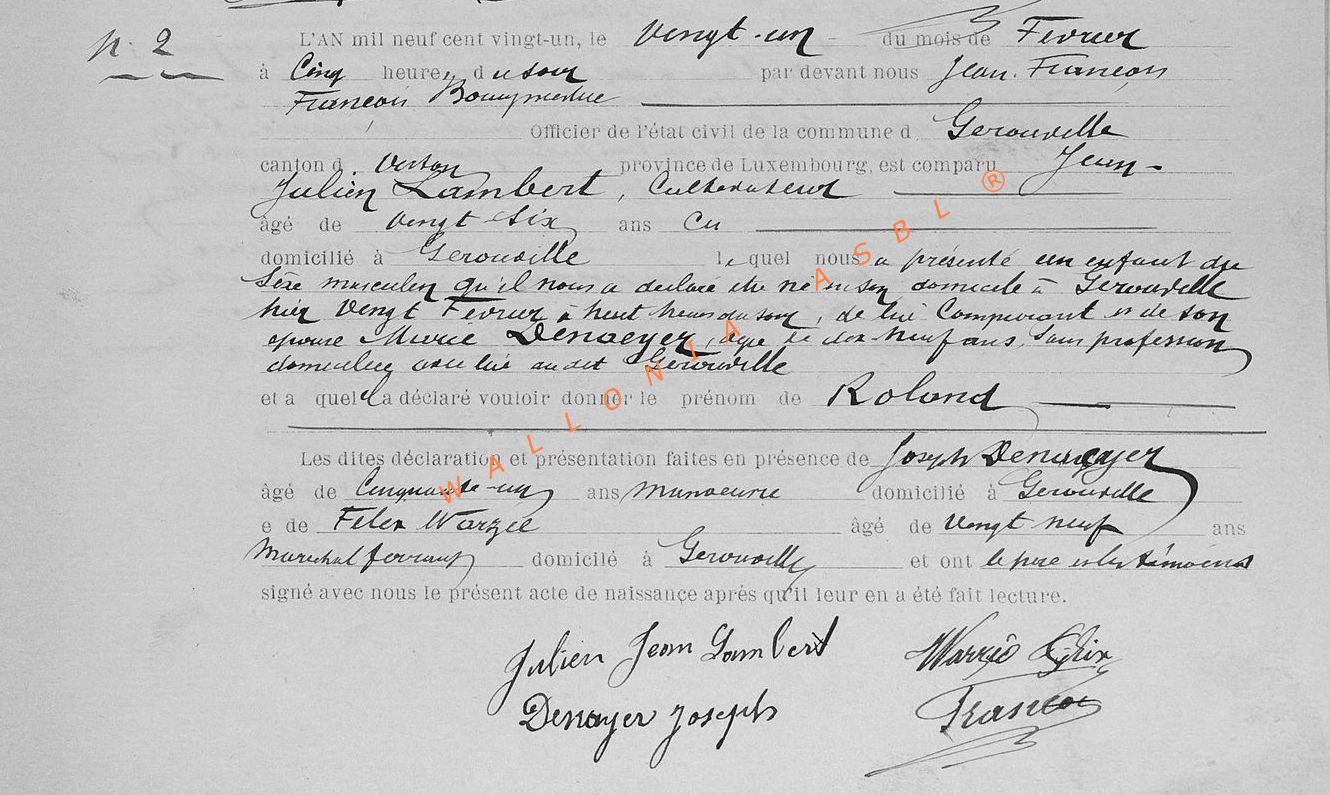 n. 2
L'AN mil neuf cent vingt-un, le Vingt-un du mois de Fevrier
à Cinq heures du soir par devant nous Jean-François
François
Officier de l'état civil de la commune d Gerouville
canton d Virton province de Luxembourg, est comparu Jean-
Julien Lambert, Cultivateur
âgé de Vingt Six ans
domicilié à Gerouville lequel nous a présenté un enfant du
Sexe masculin qu'il nous a declaré etre né en son domicile à Gerouville
hier Vingt Fevrier à huit heures du soir, de lui Comparant et de son
epouse Marie Denaeyer, agee de dix neuf ans, Sans profession
domiciliée avec lui audit Gerouville
et a quel a déclaré vouloir donner le prénom de Roland
Les dites déclaration et présentation faites en présence de Joseph Denaeyer
âgé de Cinquante-un ans manoeuvre domicilié à Gerouville
e de Felix Warzée âgé de Vingt neuf ans
Marechal ferrant domicilé à Gerouville et ont le pere et les témoins
signé avec nous le présent acte de naissance après qu'il leur en a été fait lecture.
Julien Jean Lambert Warzée Félix
Denayer Joseph François
WALLONIA ASBL ®